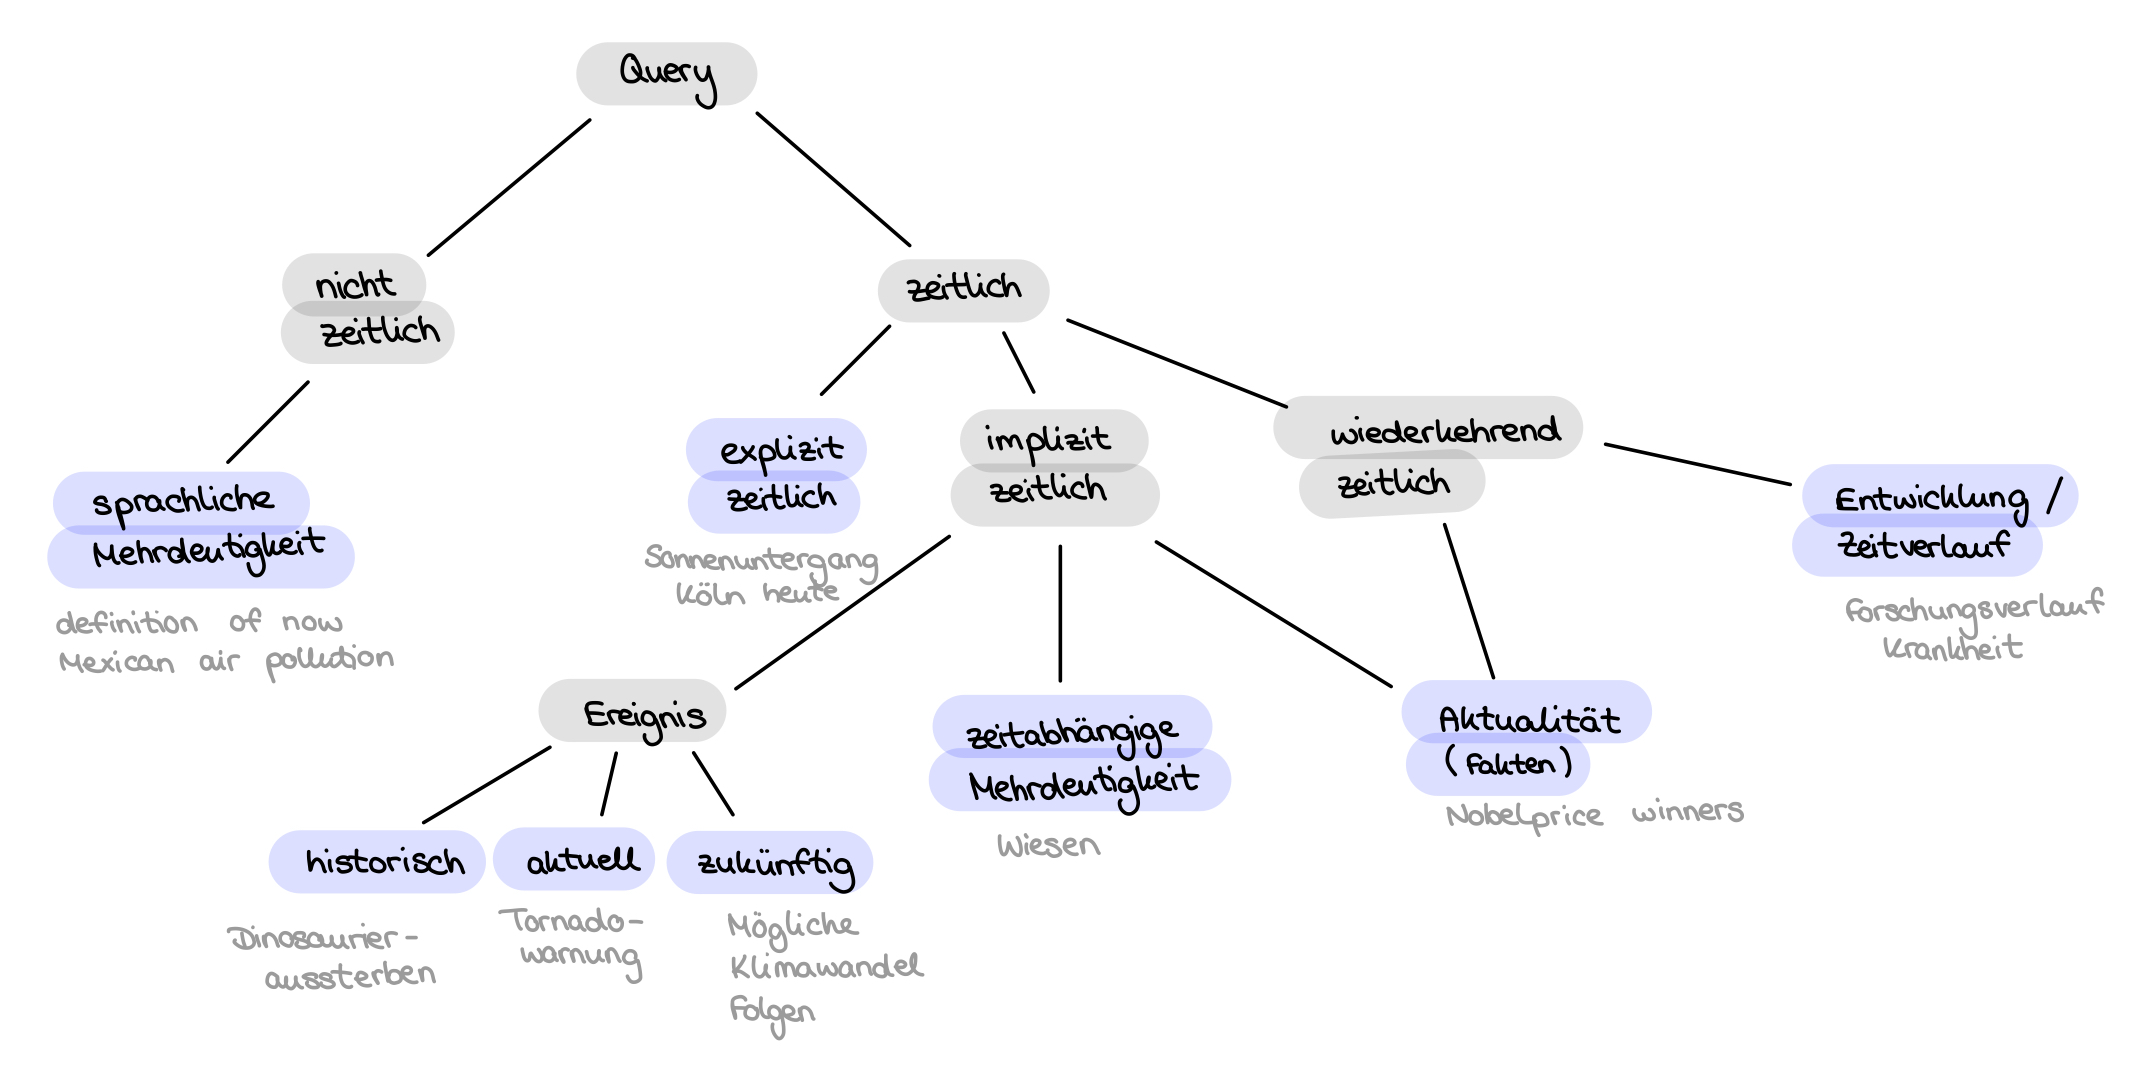 Query
nicht
zeitlich
zeitlich
sprachliche
Mehrdeutigkeit
definition of now
Mexican air pollution
explizit
zeitlich
Sonnenuntergang
Köln heute
implizit
zeitlich
wiederkehrend
zeitlich
Entwicklung /
Zeitverlauf
Forschungsverlauf
Krankheit
Ereignis
zeitabhängige
Mehrdeutigkeit
Wiesen
Aktualität
(Fakten)
Nobelprice winners
historisch
Dinosaurier-
aussterben
aktuell
Tornado-
warnung
zukünftig
Mögliche
Klimawandel
Folgen